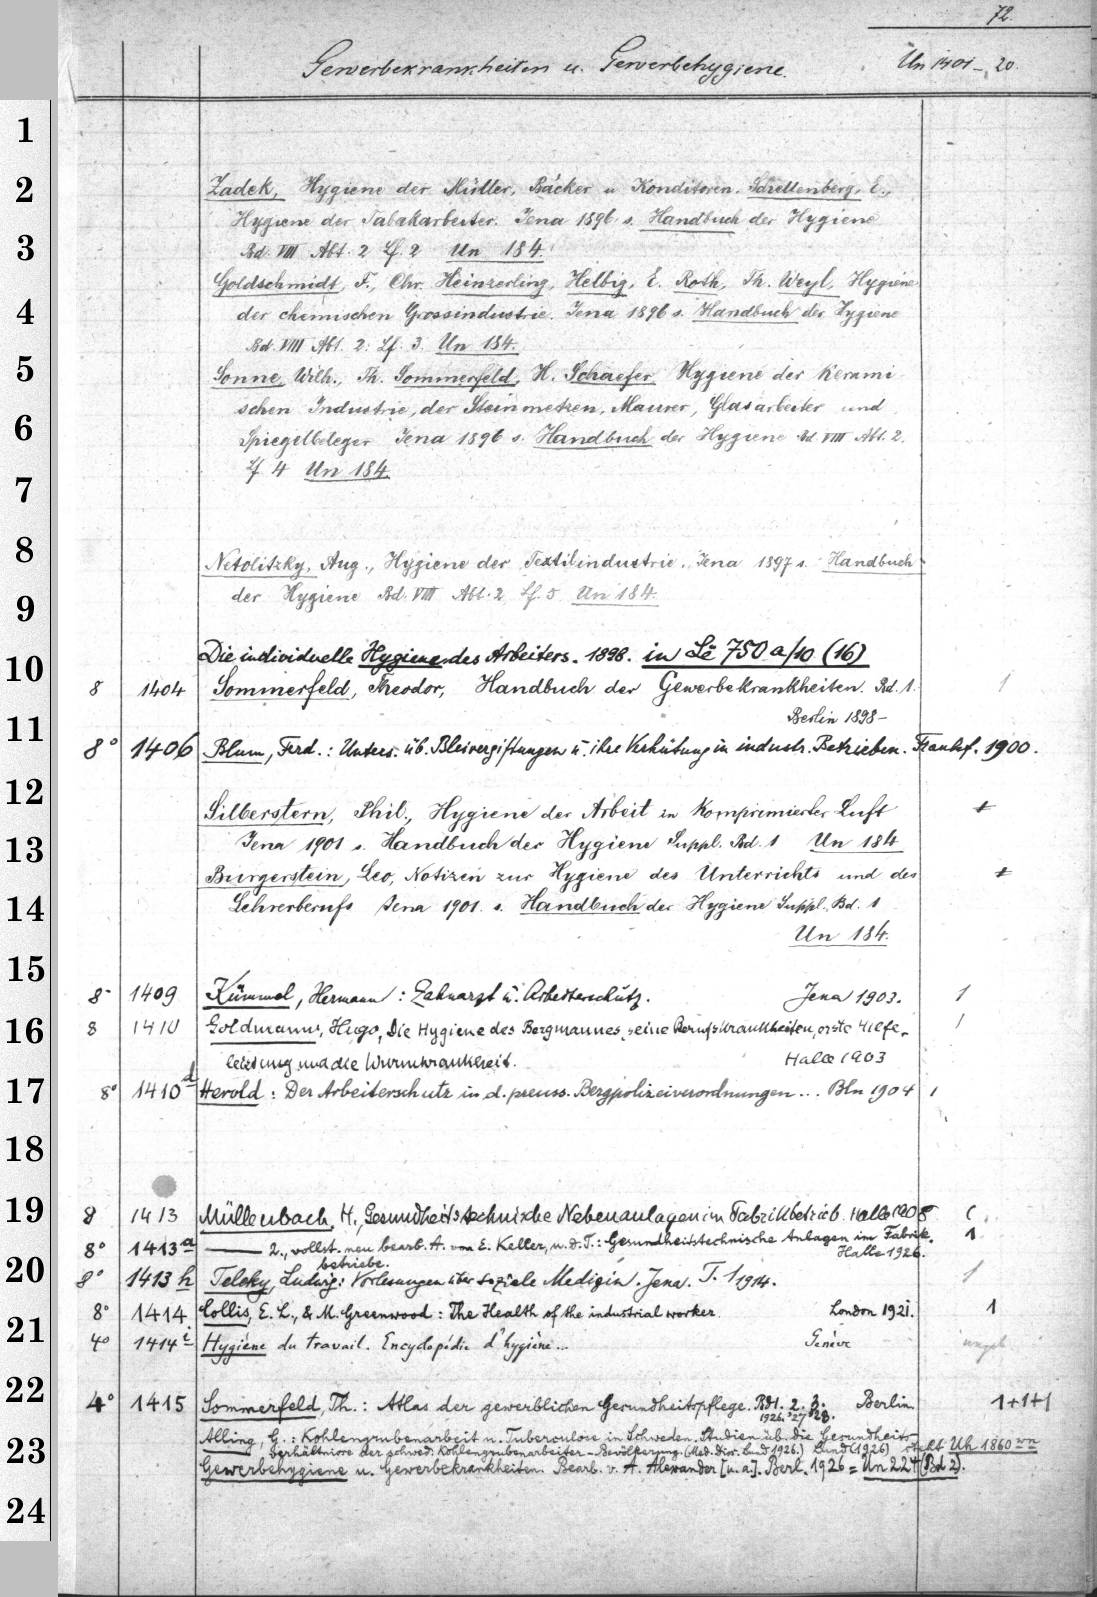 72.
Gewerbekrankheiten u. Gewerbehygiene.
Un 1401-20.
1
2
3
4
5
6
7
8
9
10
11
12
13
14
15
16
17
18
19
20
21
22
23
24
Zadek, Hygiene der Müller, Bäcker u Konditoren. Schellenberg, E.,
Hygiene der Tabakarbeiter. Jena 1896 s. Handbuch der Hygiene
Bd. VIII Abt. 2 Lf. 2 Un 184.
Goldschmidt, F., Chr. Heinzerling, Helbig, E. Roth, Th. Weyl, Hygiene
der chemischen Grossindustrie. Jena 1896 s. Handbuch der Hygiene
Bd. VIII Abt. 2. Lf. 3. Un 184.
Sonne, Wilh., Th. Sommerfeld, H. Schaefer, Hygiene der kerami
schen Industrie, der Steinmetzen, Maurer, Glasarbeiter und
Spiegelbeleger Jena 1896 s. Handbuch der Hygiene Bd. VIII Abt. 2.
Lf. 4 Un 184.
Netolitzky, Aug., Hygiene der Textilindustrie. Jena 1897 s. Handbuch
der Hygiene Bd. VIII Abt. 2 Lf. 5 Un 184.
Die individuelle Hygiene des Arbeiters. 1898. in Le 750 a/10 (16)
8 1404 Sommerfeld, Theodor, Handbuch der Gewerbekrankheiten. Bd. 1. 1
Berlin 1898-
8° 1406 Blum, Ferd.: Unters. üb. Bleivergiftungen u. ihre Verhütung in industr. Betrieben. Frankf. 1900.
Silberstern, Phil., Hygiene der Arbeit in komprimierter Luft
Jena 1901 s. Handbuch der Hygiene Suppl. Bd. 1 Un 184
Burgerstein, Leo, Notizen zur Hygiene des Unterrichts und des
Lehrerberufs Jena 1901. s. Handbuch der Hygiene Suppl. Bd. 1
Un 184.
8° 1409 Kümmel, Hermann: Zahnarzt u. Arbeiterschutz. Jena 1903. 1
8 1410 Goldmann, Hugo, Die Hygiene des Bergmannes, seine Berufskrankheiten, erste Hilfe-
leistung und die Wurmkrankheit. Halle 1903
8° 1410 d Herold: Der Arbeiterschutz in d. preuss. Bergpolizeiverordnungen... Bln 1904 1
8 1413 Müllenbach, H., Gesundheitstechnische Nebenanlagen im Fabrikbetrieb. Halle 1908
8° 1413 a — 2., vollst. neu bearb. A. von E. Keller, u. d. T.: Gesundheitstechnische Anlagen im Fabrik- 1
betriebe. Halle 1926.
8° 1413 h Teleky, Ludwig: Vorlesungen über soziale Medizin. Jena. T. 1 1914. 1
8° 1414 Collis, E. L., & M. Greenwood: The Health of the industrial worker. London 1921. 1
4° 1414 i Hygiène du travail. Encyclopédie d'hygiène... Genève
4° 1415 Sommerfeld, Th.: Atlas der gewerblichen Gesundheitspflege. Bd 1. 2. 3. Berlin. 1+1+1
1926. '27 '28.
Alling, G.: Kohlengrubenarbeit u. Tuberculose in Schweden. Studien üb. die Gesundheits-
verhältnisse der schwed. Kohlengrubenarbeiter-Bevölkerung. (Med. Diss. Lund 1926.) Lund (1926) steht Uh 1860
Gewerbehygiene u. Gewerbekrankheiten. Bearb. v. A. Alexander [u. a.]. Berl. 1926 = Un 224 (Bd 2).